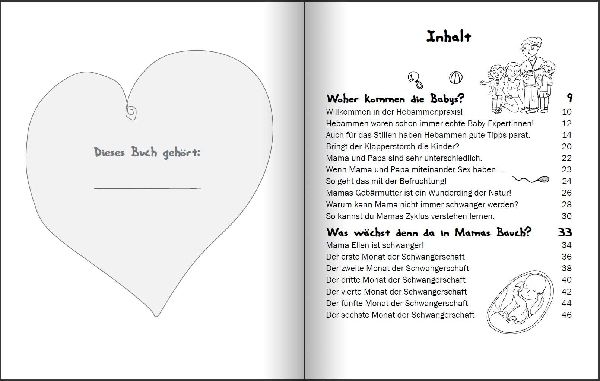 Dieses Buch gehört:
Inhalt
Woher kommen die Babys? 9
Willkommen in der Hebammenpraxis! 10
Hebammen waren schon immer echte Baby Expertinnen! 12
Auch für das Stillen haben Hebammen gute Tipps parat. 14
Bringt der Klapperstorch die Kinder? 20
Mama und Papa sind sehr unterschiedlich. 22
Wenn Mama und Papa miteinander Sex haben ... 23
So geht das mit der Befruchtung! 24
Mamas Gebärmutter ist ein Wunderding der Natur! 26
Warum kann Mama nicht immer schwanger werden? 28
So kannst du Mamas Zyklus verstehen lernen. 30
Was wächst denn da in Mamas Bauch? 33
Mama Ellen ist schwanger! 34
Der erste Monat der Schwangerschaft 36
Der zweite Monat der Schwangerschaft 38
Der dritte Monat der Schwangerschaft 40
Der vierte Monat der Schwangerschaft 42
Der fünfte Monat der Schwangerschaft 44
Der sechste Monat der Schwangerschaft 46